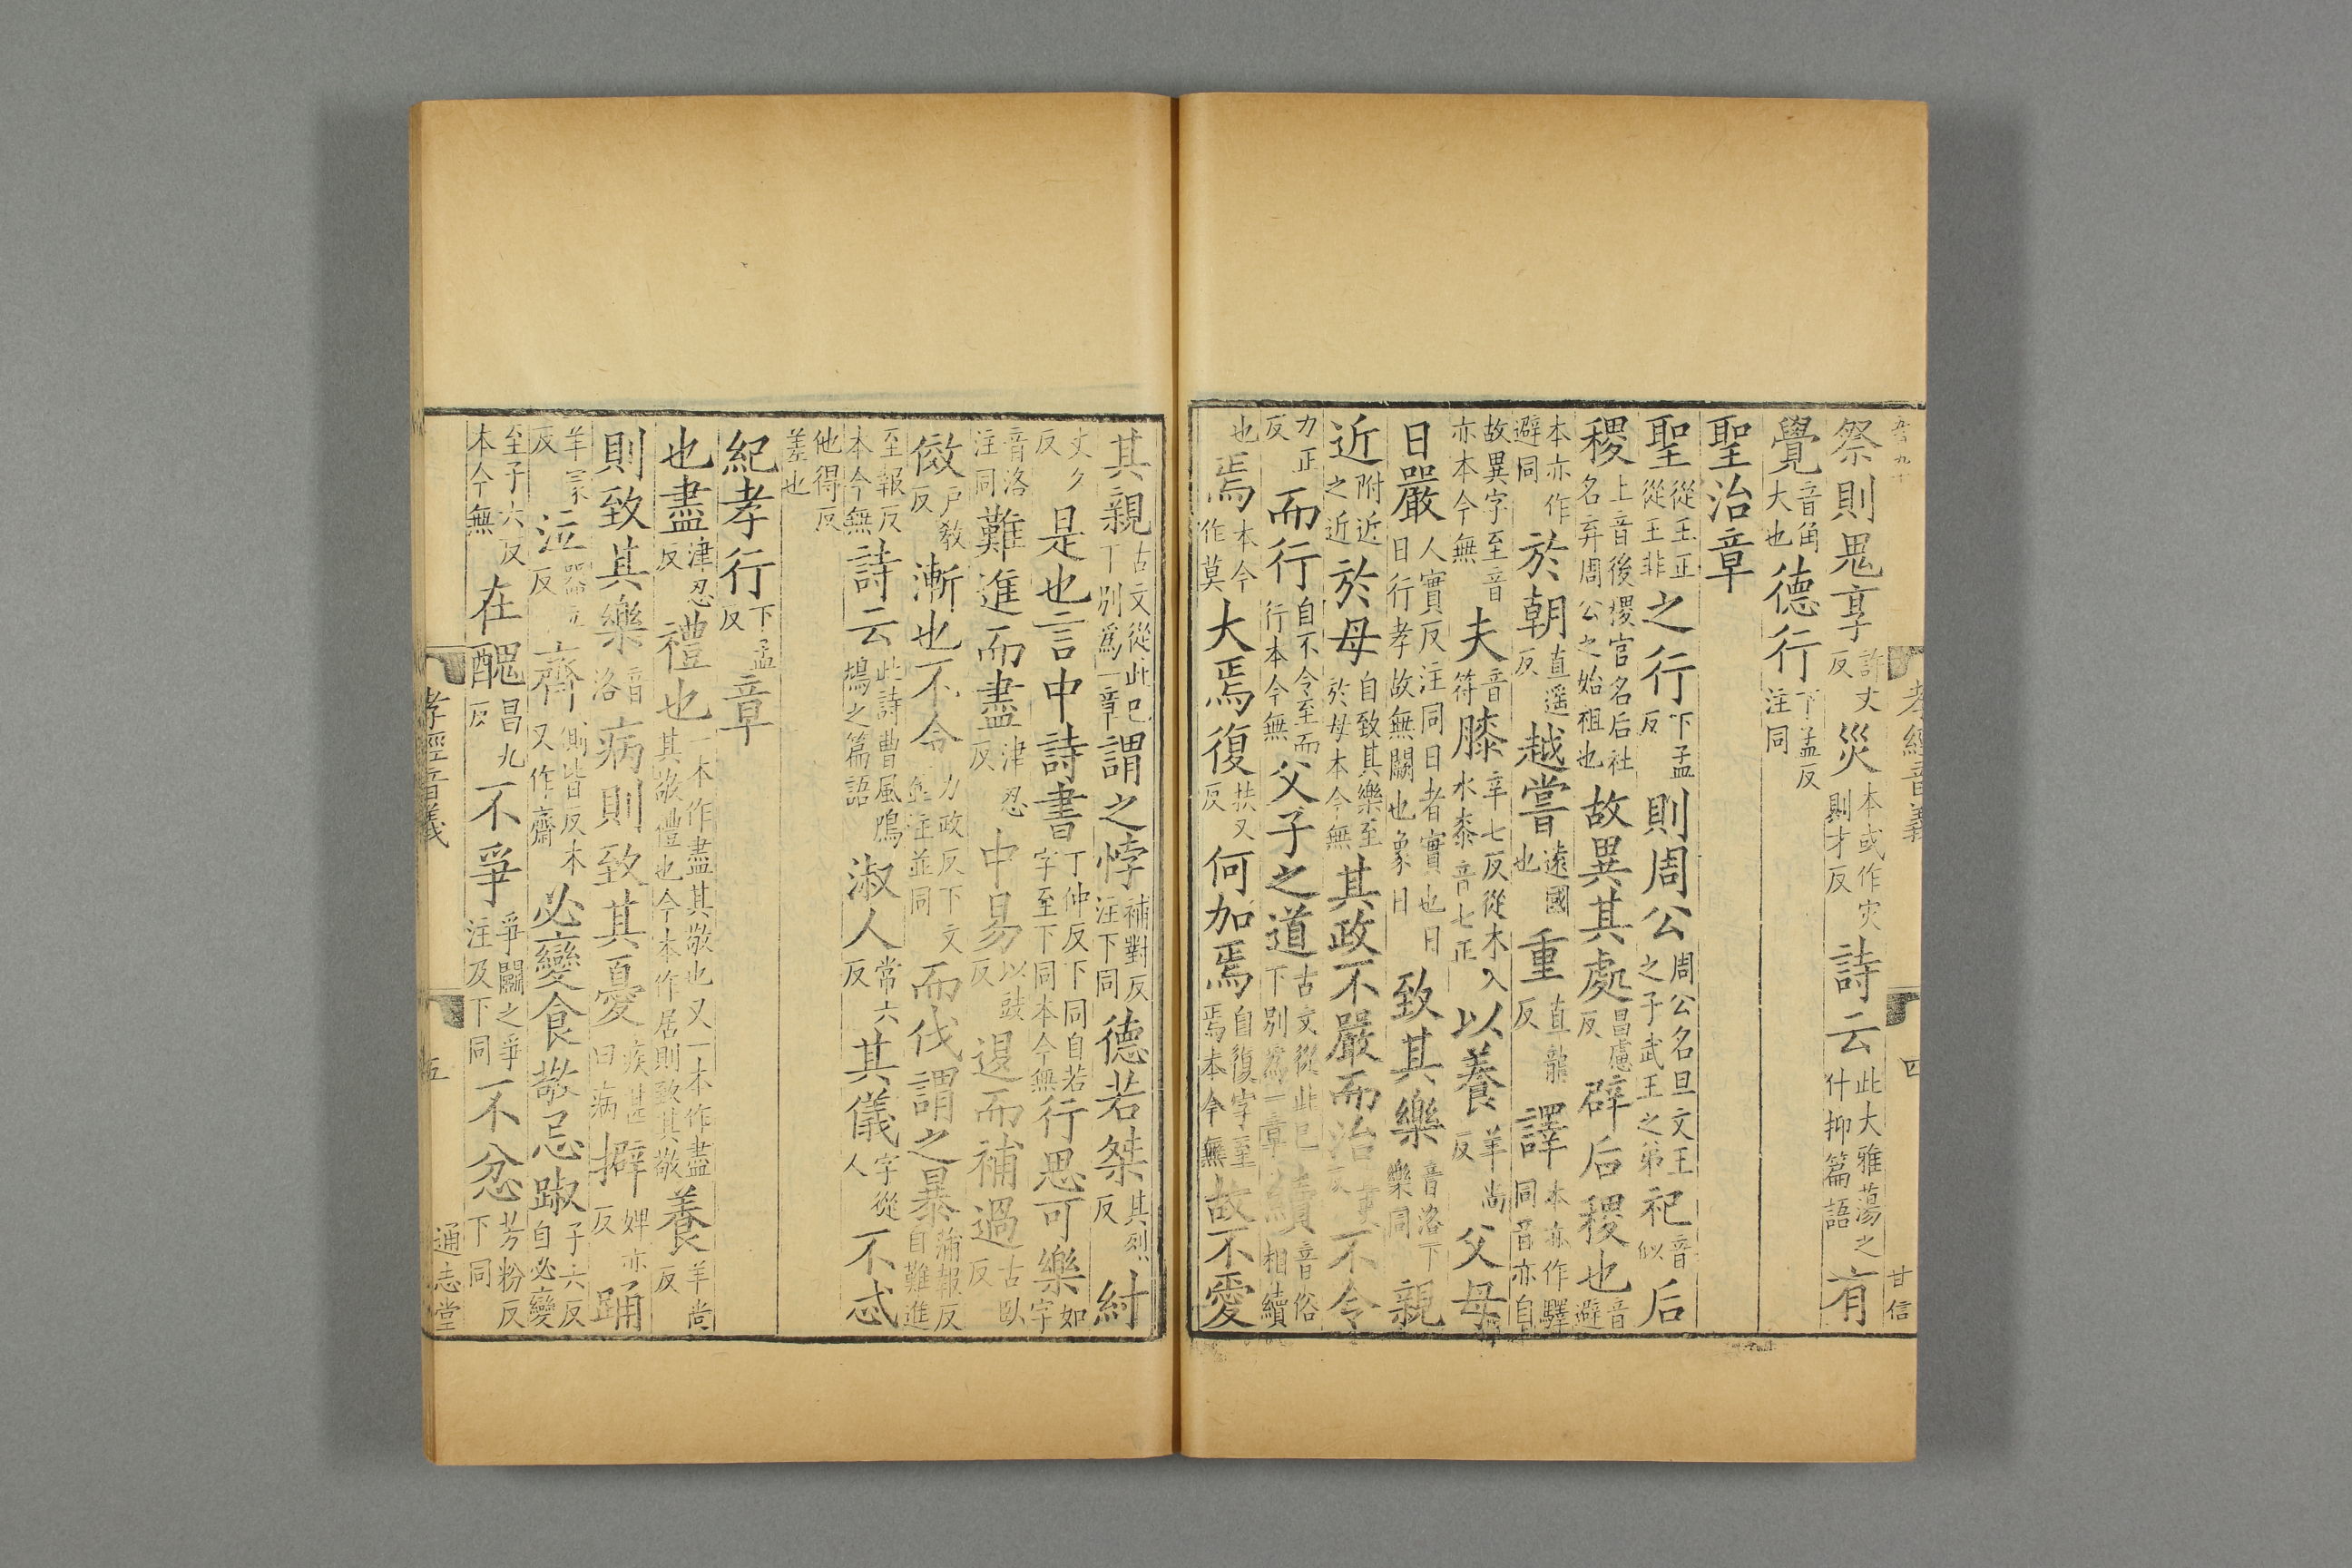 孝經音義 四 甘信
祭則鬼享許丈反災本或作灾則才反詩云此大雅蕩之什抑篇語有
覺音角大也德行下孟反注同
聖治章
聖從𡈼正從王非之行下孟反則周公周公名旦文王之子武王之弟祀音似后
稷上音後稷官名后社名弃周公之始祖也故異其處昌慮反辟后稷也音避
本亦作避同於朝直遥反越嘗遠國也重直龍反譯本亦作驛同音亦自
故異字至音亦本今無夫音符膝辛七反從木入水桼音七正以養羊尚反父母
日嚴人實反注同日者實也日日行孝故無闕也象日致其樂音洛下樂同親
近附近之近於母自致其樂至於母本今無其政不嚴而治不令
力正反而行自不令至而行本今無父子之道古文從此已下別爲一章續音俗相續
也焉本今作莫大焉復扶又反何加焉自復字至焉本今無故不愛
其親古文從此已下別爲一章謂之悖補對反注下同德若桀其烈反紂
丈久反是也言中詩書丁仲反下同自若字至下同本今無行思可樂如字
音洛注同難進而盡津忍反中易以豉反退而補過古臥反
傚戶敎反漸也不令力政反下文並注並同而伐謂之暴蒲報反自難進
至報反本今無詩云此詩曹風鳲鳩之篇語淑人常六反其儀字從人不忒
他得反差也
紀孝行下孟反章
也盡津忍反禮也一本作盡其敬也又一本作盡其敬禮也今本作居則致其敬養羊尚反
則致其樂音洛病則致其憂疾甚曰病擗婢亦反踊
羊冢反泣器立反齊側皆反本又作齋必變食敬忌踧子六反自必變
至子六反本今無在醜昌九反不爭爭鬭之爭注及下同不忿芳粉反下同
孝經音義 五 通志堂